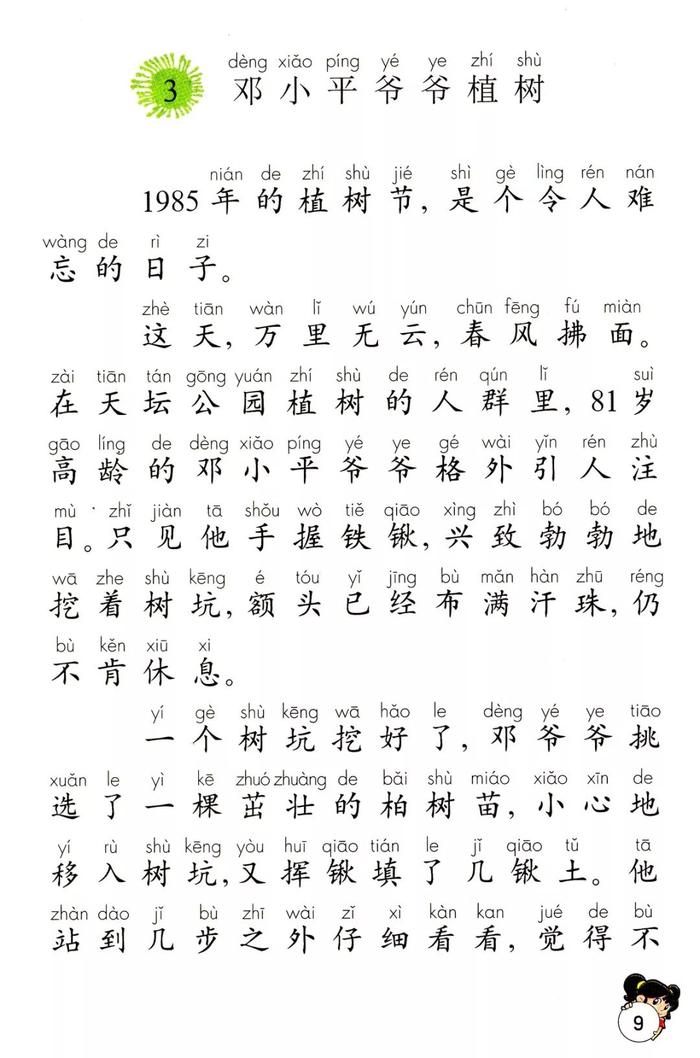 dèng xiǎo píng yé ye zhí shù
3 邓小平爷爷植树
nián de zhí shù jié shì gè lìng rén nán
1985年的植树节,是个令人难
wàng de rì zi
忘的日子。
zhè tiān wàn lǐ wú yún chūn fēng fú miàn
这天,万里无云,春风拂面。
zài tiān tán gōng yuán zhí shù de rén qún lǐ suì
在天坛公园植树的人群里,81岁
gāo líng de dèng xiǎo píng yé ye gé wài yǐn rén zhù
高龄的邓小平爷爷格外引人注
mù zhǐ jiàn tā shǒu wò tiě qiāo xìng zhì bó bó de
目。只见他手握铁锹,兴致勃勃地
wā zhe shù kēng é tóu yǐ jīng bù mǎn hàn zhū réng
挖着树坑,额头已经布满汗珠,仍
bù kěn xiū xi
不肯休息。
yí gè shù kēng wā hǎo le dèng yé ye tiāo
一个树坑挖好了,邓爷爷挑
xuǎn le yì kē zhuó zhuàng de bǎi shù miáo xiǎo xīn de
选了一棵茁壮的柏树苗,小心地
yí rù shù kēng yòu huī qiāo tián le jǐ qiāo tǔ tā
移入树坑,又挥锹填了几锹土。他
zhàn dào jǐ bù zhī wài zǐ xì kàn kan jué de bù
站到几步之外仔细看看,觉得不
9